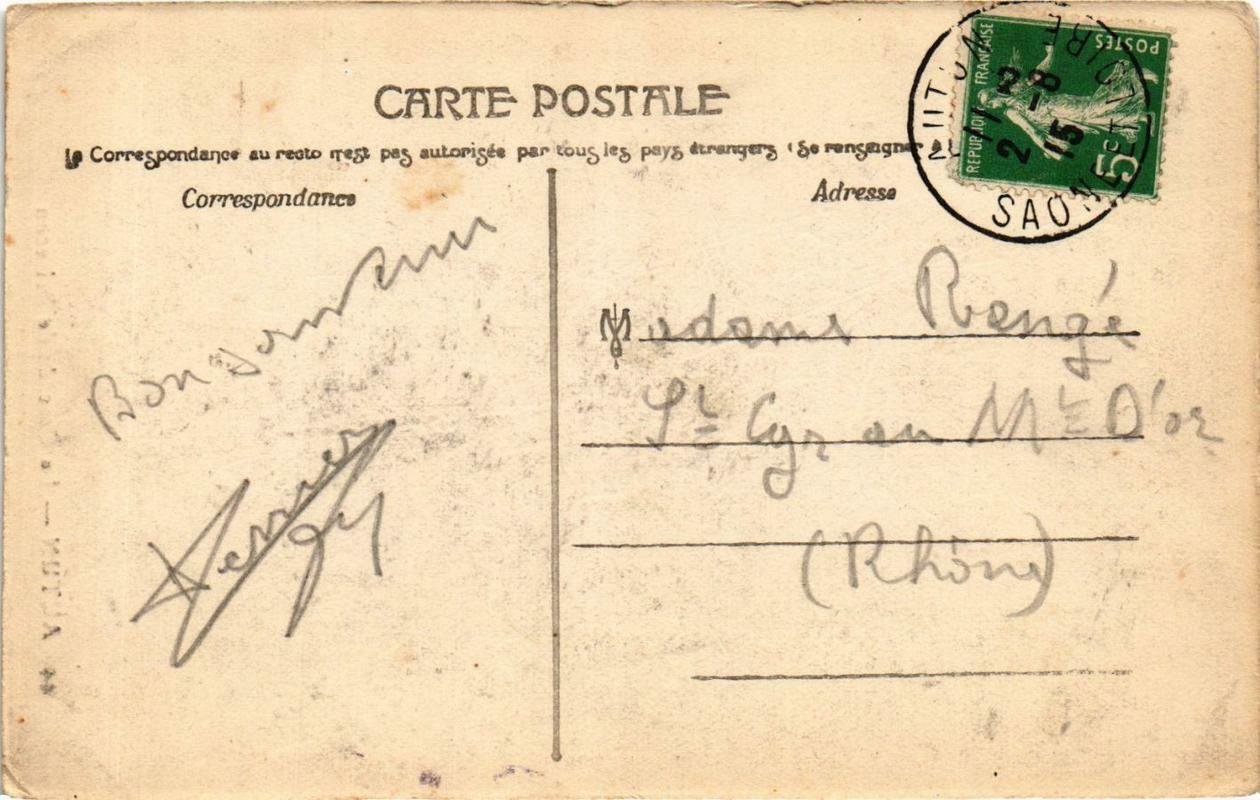 CARTE POSTALE
La Correspondance au recto n'est pas autorisée par tous les pays étrangers (Se renseigner à
Correspondance
Adresse
REPUBLIQUE FRANÇAISE
POSTES
5c
AUTUN
SAONE-ET-LOIRE
8-
2-11 15
Bon Souvenir
Madame Rengé
St Cyr au Mt D'or
(Rhône)
44 AUTUN —